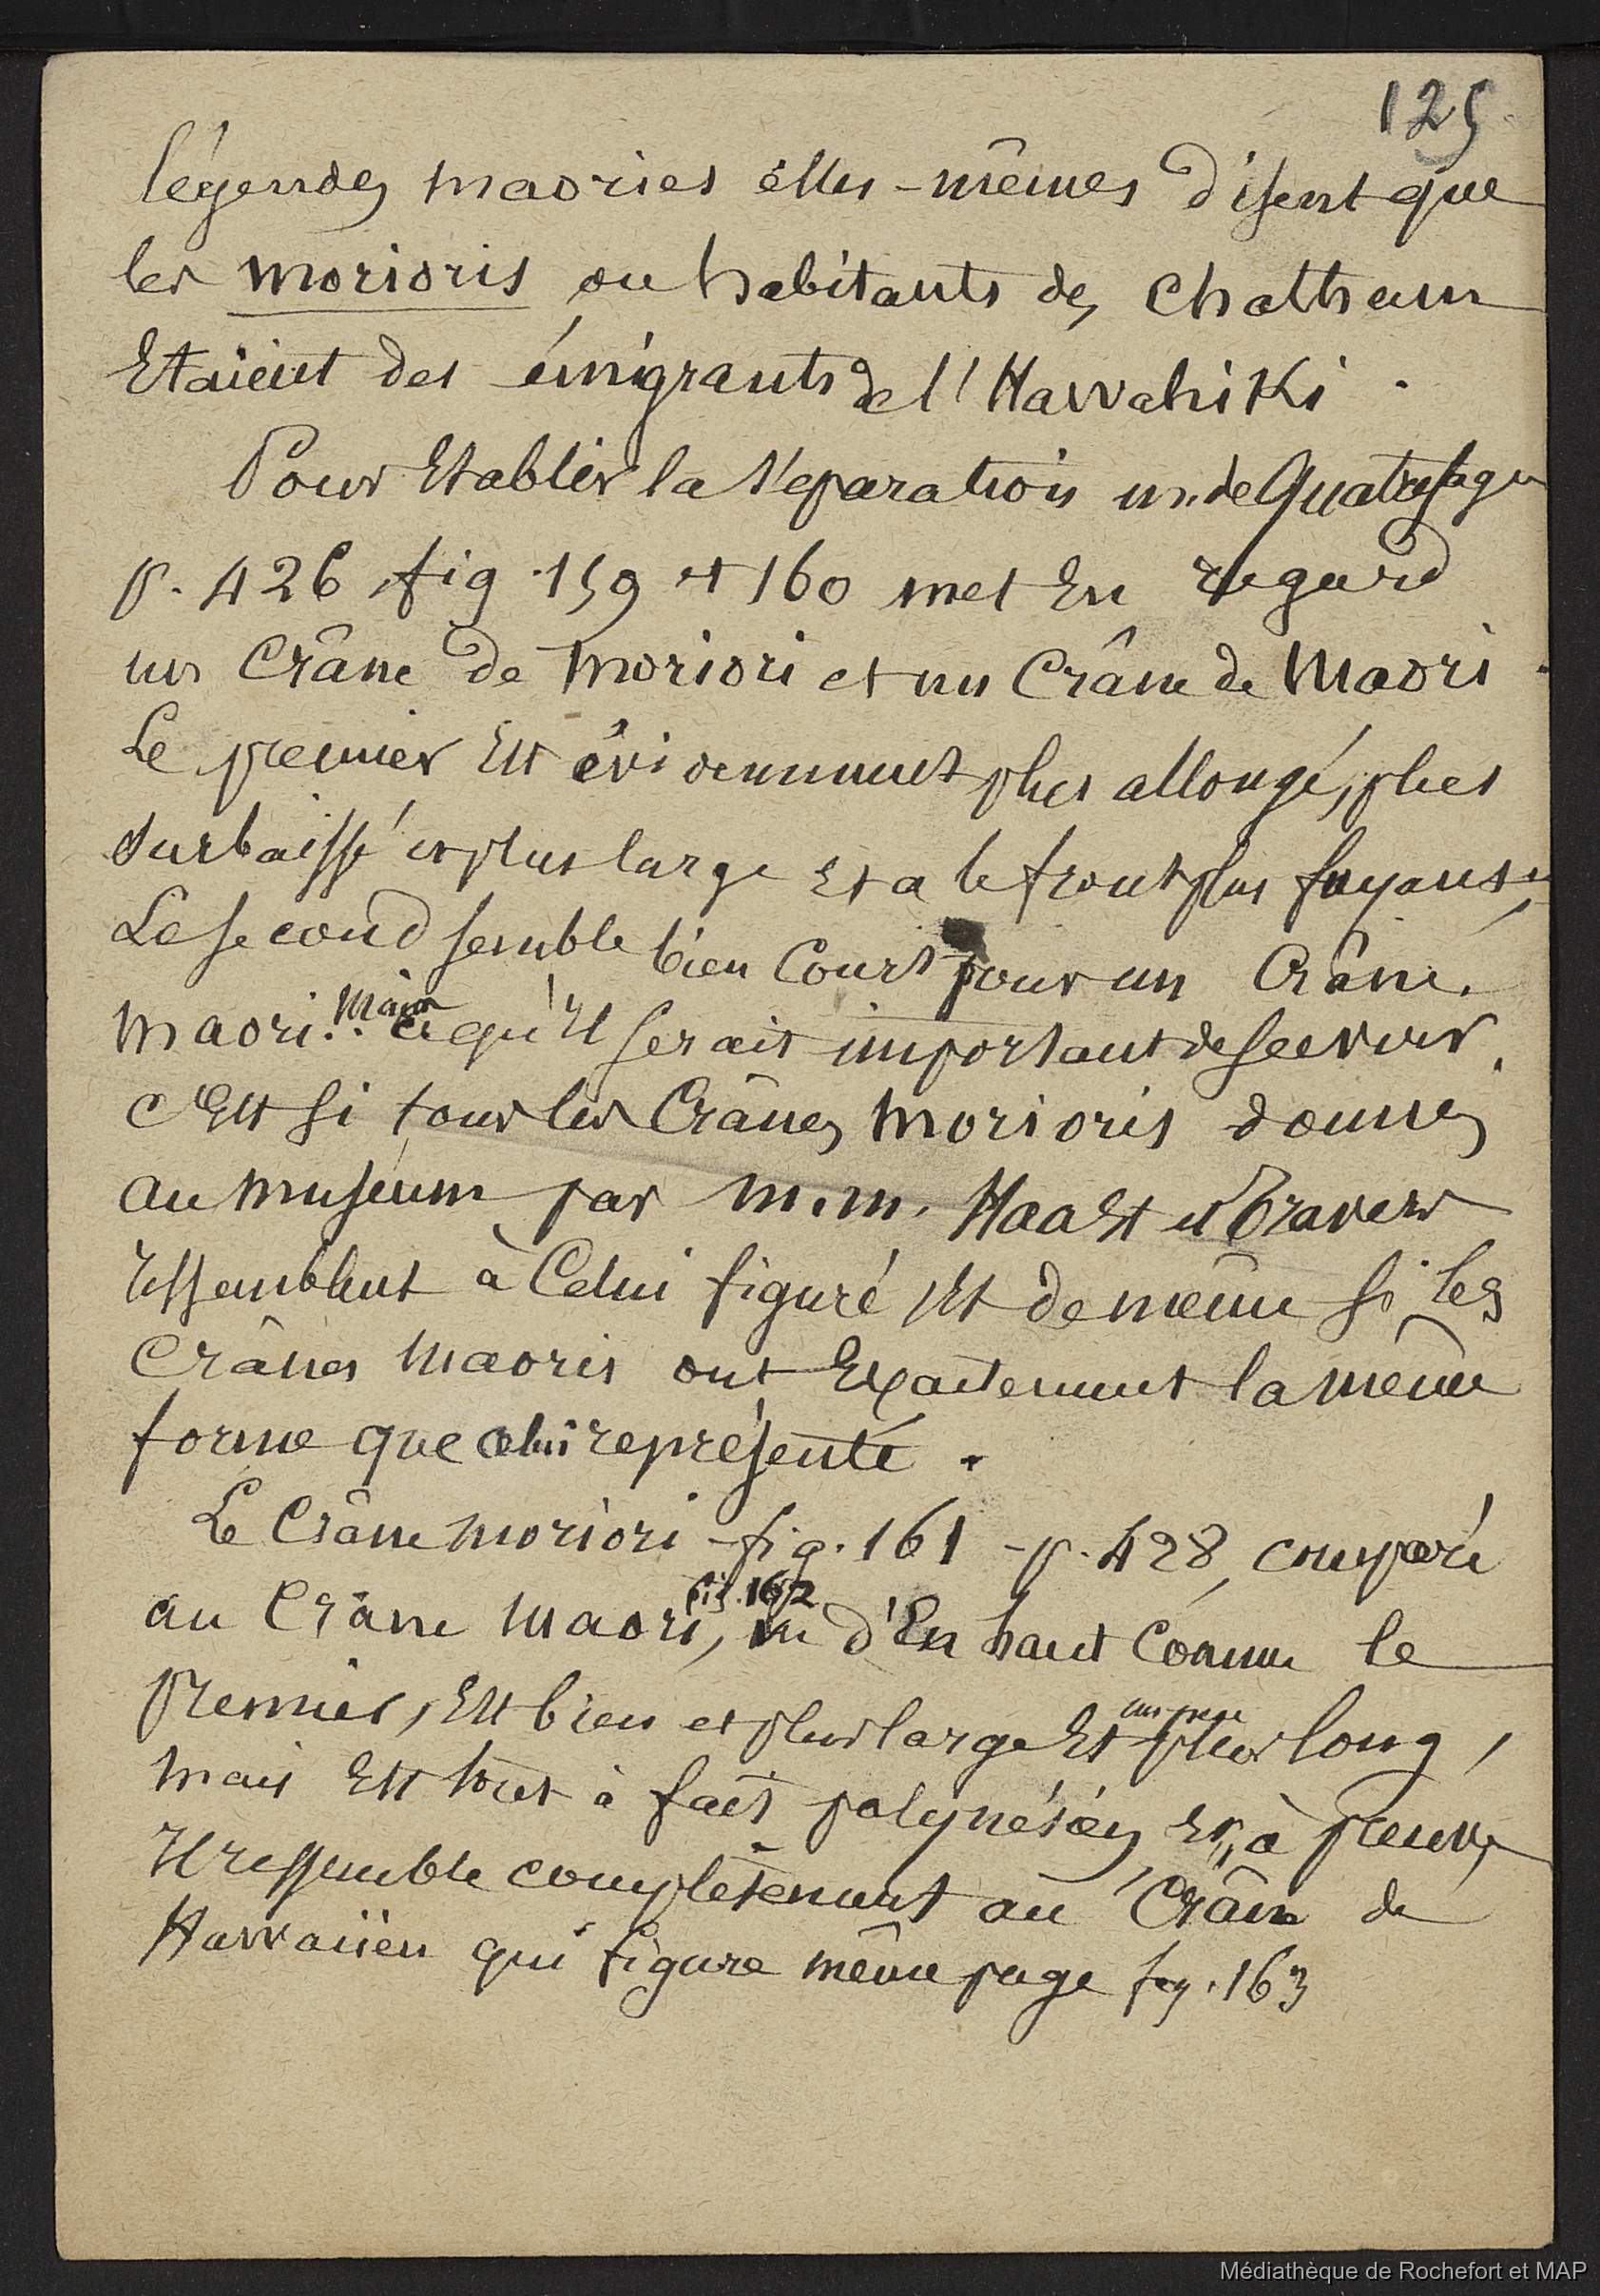 125
légendes maories elles-mêmes disent que
les morioris ou habitants des Chatham
Etaient des émigrants de l'Hawahiki.
Pour Etablir la séparation m. de Quatrefages
p. 426 fig. 159 et 160 met En regard
un Crâne de Moriori et un Crâne de Maori.
Le premier Est évidemment plus allongé, plus
surbaissé et plus large Et a le front plus fuyant;
Le second semble bien Court pour un Crâne
maori. Mais ce qu'Il serait important de savoir,
c'Est si tous les Crânes Morioris donnés
au muséum par m.m. Haast et Travers
ressemblent à Celui figuré Et de même si les
Crânes Maoris ont Exactement la même
forme que celui représenté.
Le Crâne moriori - fig. 161 - p. 428, comparé
au Crâne Maori, fig. 162 vu d'En haut Comme le
Premier, Est bien et plus large Et un peu plus long,
mais Est tout à fait polynésien, Et, à preuve,
Il ressemble complètement au Crâne de
Hawaiien qui figure même page fig. 163
Médiathèque de Rochefort et MAP